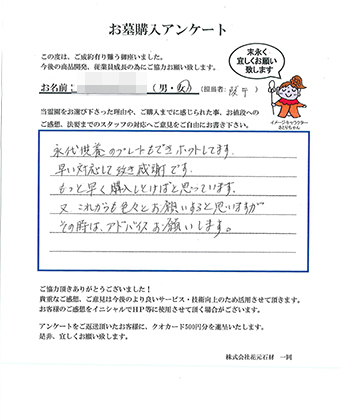 お墓購入アンケート
この度は、ご成約有り難う御座いました。
今後の商品開発、従業員成長の為にご協力お願い致します。
末永く
宜しくお願い
致します
お名前: (男・女) (担当者: 阪下)
イメージキャラクター
さとりちゃん
当霊園をお選び下さった理由や、ご購入までに感じられた事、お値段への
ご感想、法要までのスタッフの対応へご意見をご自由にお書き下さい。
永代供養のプレートもできホットしてます。
早い対応して頂き感謝です。
もっと早く購入しとけばと思っています。
又これからも色々とお願いすると思いますが
その時は、アドバイスお願いします。
ご協力頂きありがとうございました！
貴重なご感想、ご意見は今後のより良いサービス・技術向上のため活用させて頂きます。
お客様のご感想をイニシャルでHP等に使用させて頂く場合がございます。
アンケートをご返送頂いたお客様に、クオカード500円分を進呈いたします。
是非、宜しくお願い致します。
株式会社花元石材 一同